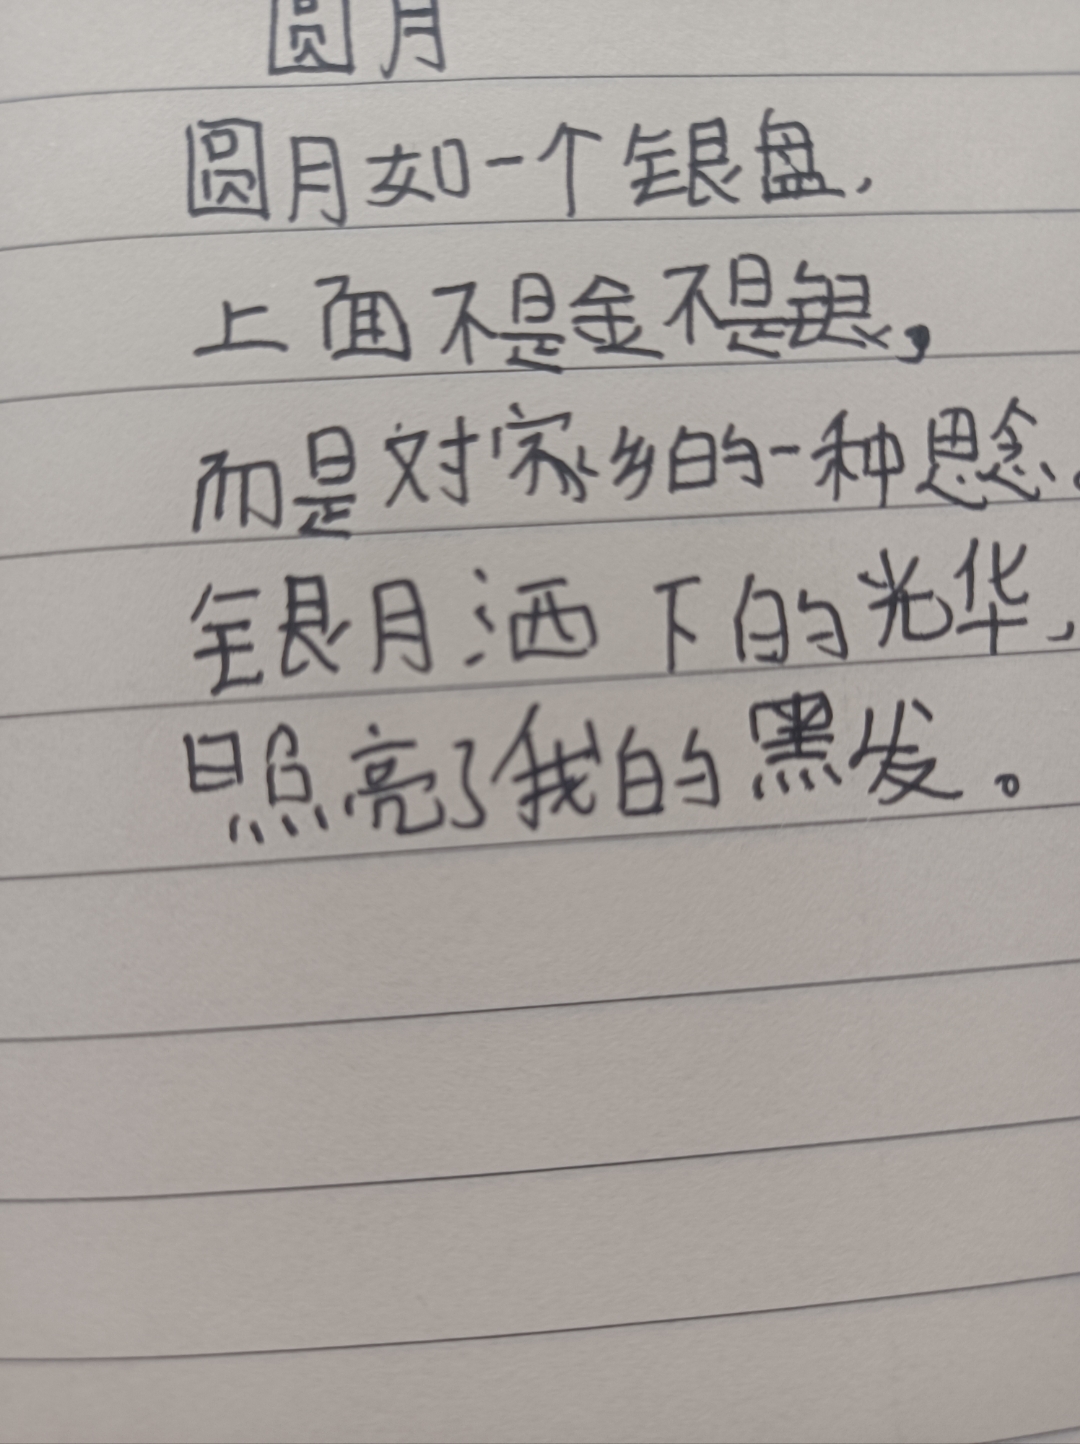 圆月
圆月如一个银盘,
上面不是金不是银,
而是对家乡的一种思念。
银月洒下的光华,
照亮了我的黑发。